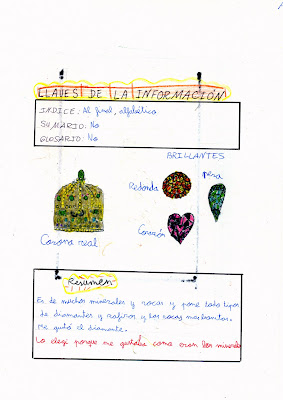 CLAVES DE LA INFORMACIÓN
INDICE: Al final, alfabético
SUMARIO: No
GLOSARIO: No
BRILLANTES
Redonda
pera
Corazón
Corona real
Resumen
Es de muchos minerales y rocas y pone todo tipos
de diamantes y zafiros y las rocas mas bonitas.
Me gustó el diamante.
Lo elegí porque me gustaba como eran los minerales